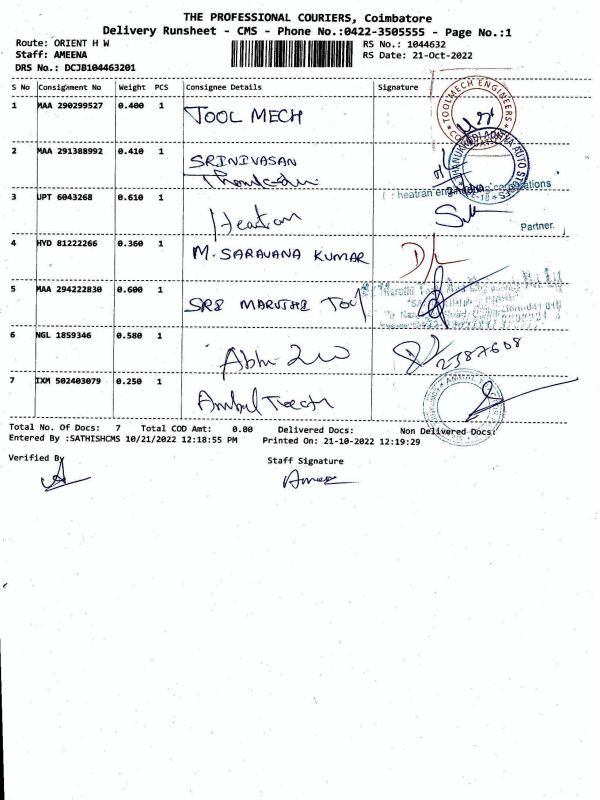 THE PROFESSIONAL COURIERS, Coimbatore
Delivery Runsheet - CMS - Phone No.:0422-3505555 - Page No.:1
Route: ORIENT H W
Staff: AMEENA
DRS No.: DCJB104463201
RS No.: 1044632
RS Date: 21-Oct-2022
S No Consignment No Weight PCS Consignee Details Signature
1 MAA 290299527 0.400 1 TOOL MECH
TOOLMECH ENGINEERS
2 MAA 291388992 0.410 1 SRINIVASAN
AUTO
3 UPT 6043268 0.610 1 Heatran
heatran
Partner.
4 HYD 81222266 0.360 1 M. SARAVANA KUMAR
5 MAA 294222830 0.600 1 SRI MARUTHI Tool
6 NGL 1859346 0.580 1 Abhi
2387608
7 IXM 502403079 0.250 1 Ambal
Total No. Of Docs: 7 Total COD Amt: 0.00 Delivered Docs: Non Delivered Docs:
Entered By :SATHISHCMS 10/21/2022 12:18:55 PM Printed On: 21-10-2022 12:19:29
Verified By
Staff Signature